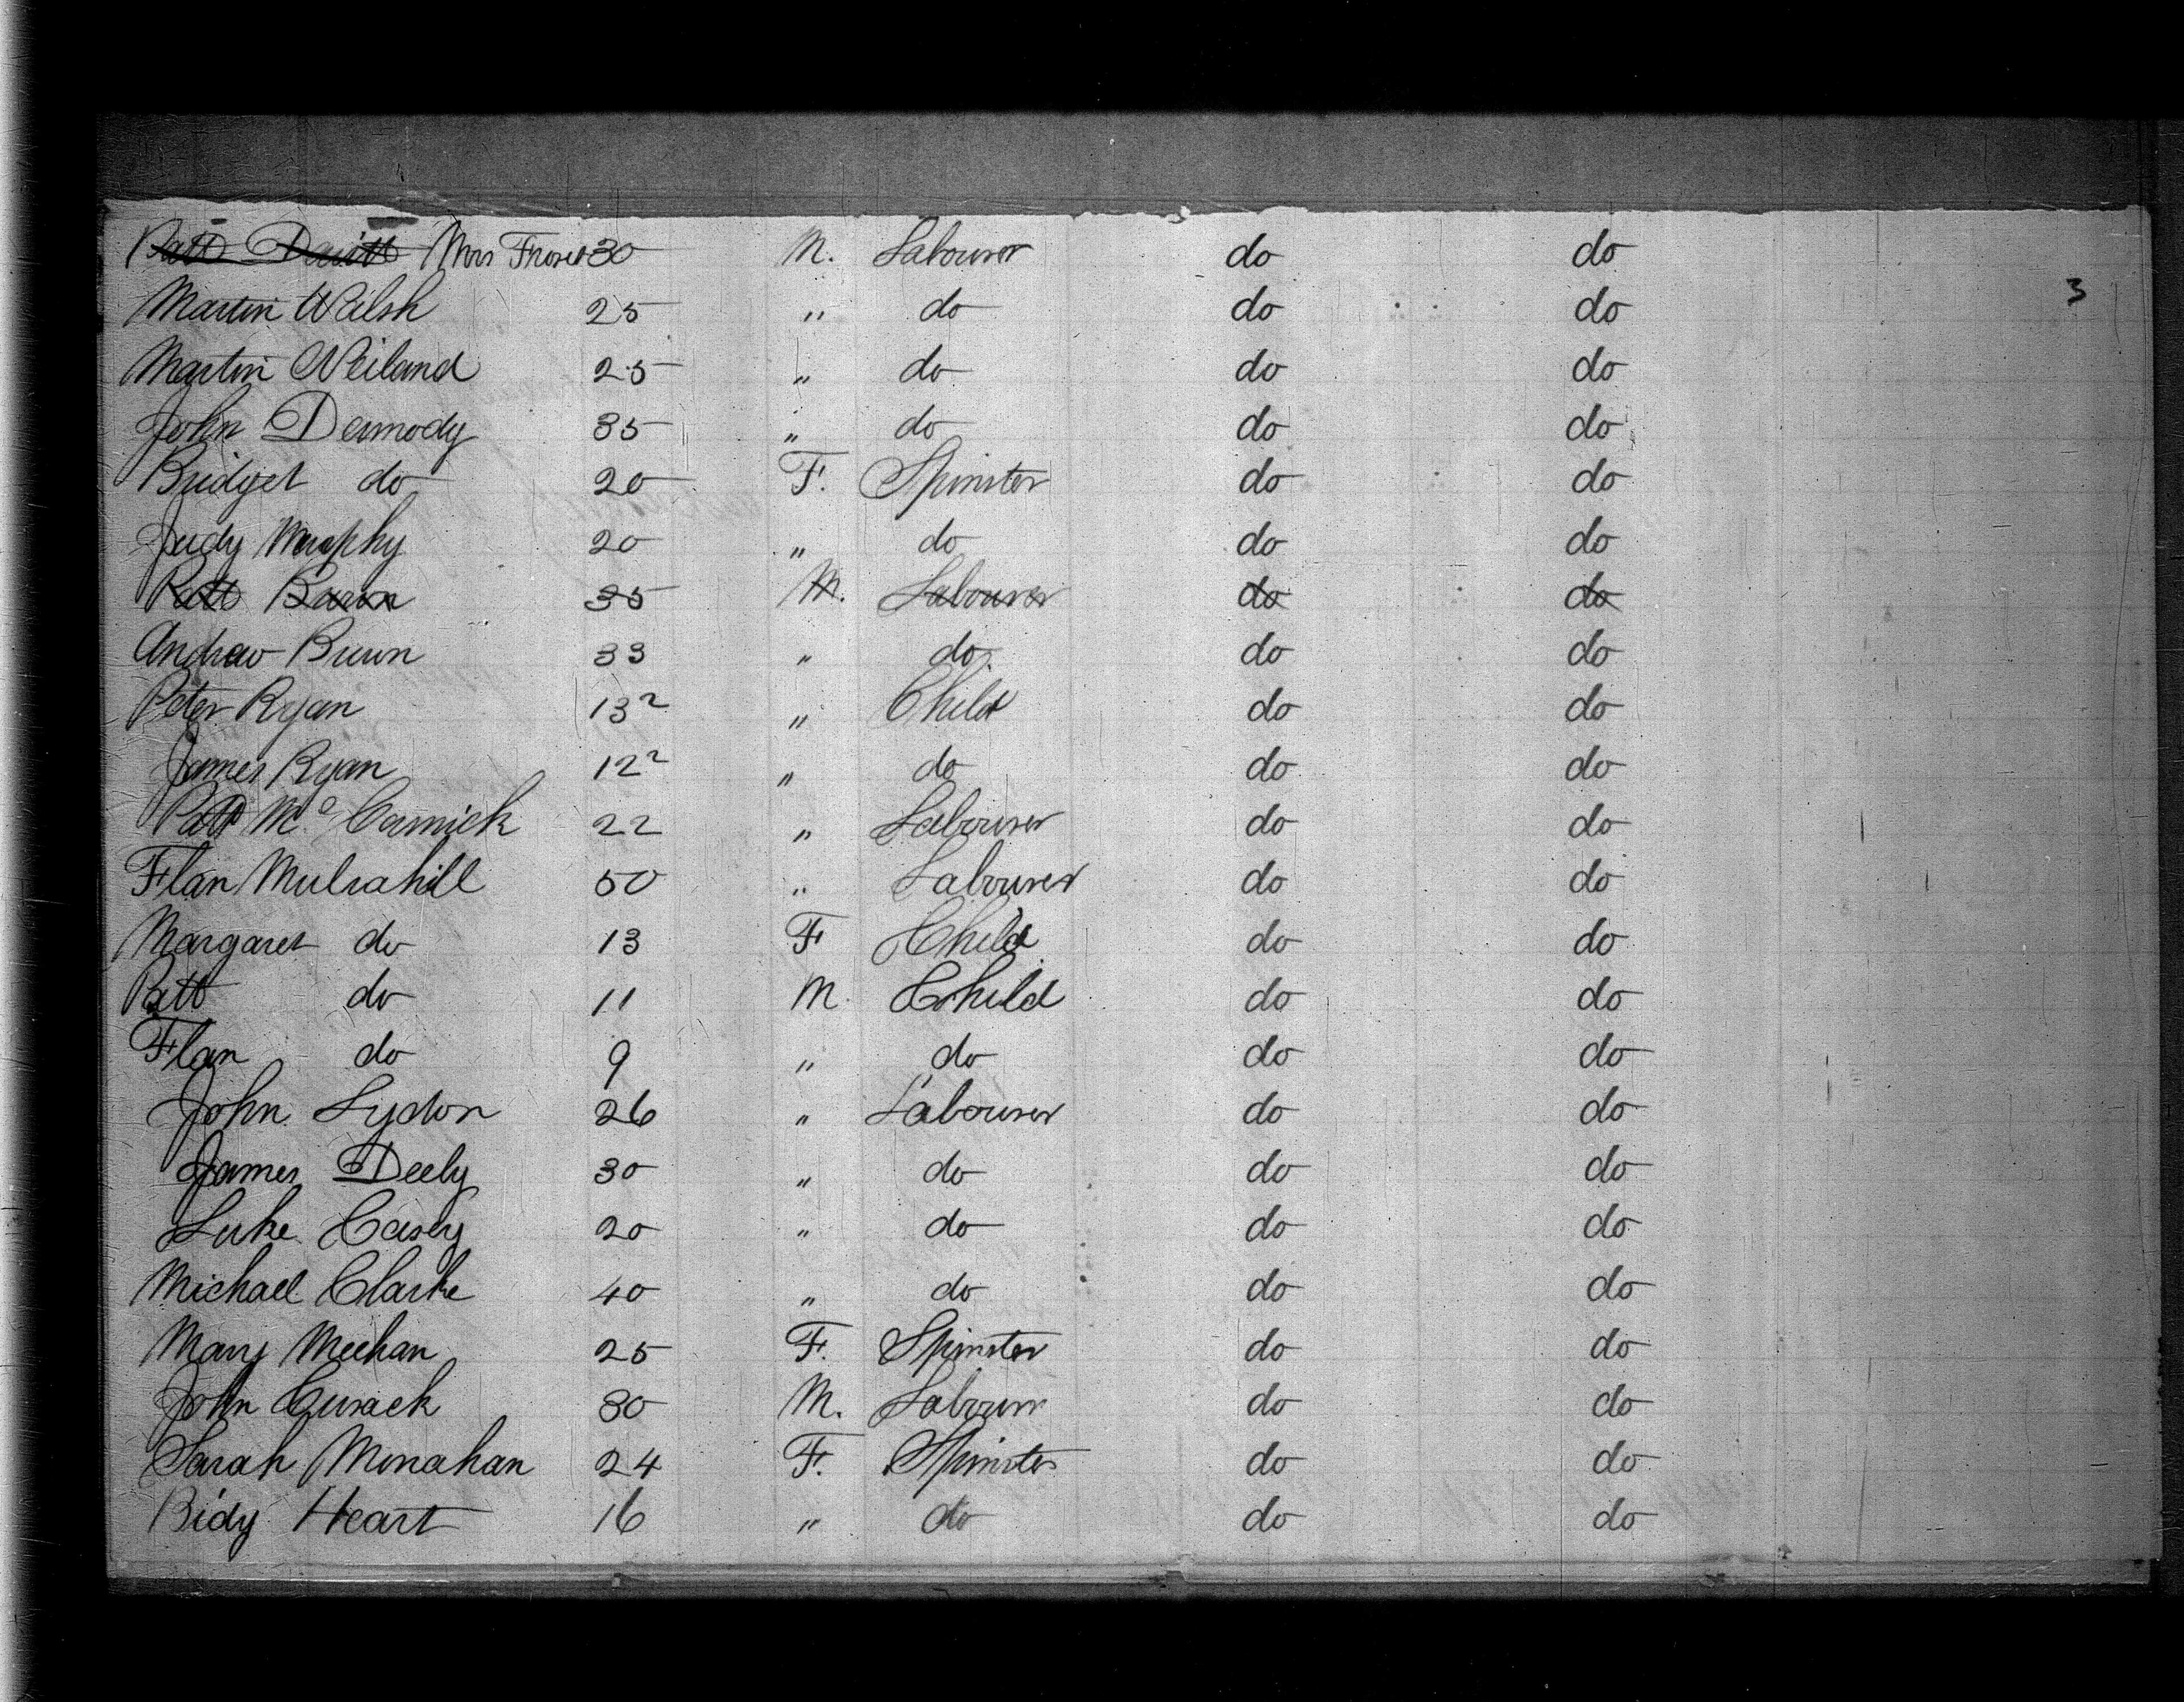 Patt Devitt Mors Froses 30 M. Labourer do do
Martin Walsh 25 " do do do 3
Martin Weiland 25 " do do do
John Dermody 35 " do do do
Bridget do 20 F. Spinster do do
Judy Murphy 20 " do do do
Patt Burin 35 M. Labourer do do
Andrew Burin 33 " do do do
Peter Ryan 13 2 " Child do do
James Ryan 12 2 " do do do
Patt Mc Cormick 22 " Labourer do do
Flan Mulrahill 50 " Labourer do do
Margaret do 13 F Child do do
Patt do 11 M. Child do do
Flan do 9 " do do do
John Lydon 26 " Labourer do do
James Deely 30 " do do do
Luke Casey 20 " do do do
Michael Clarke 40 " do do do
Mary Meehan 25 F. Spinster do do
John Cusack 30 M. Labourer do do
Sarah Monahan 24 F. Spinster do do
Bidy Heart 16 " do do do